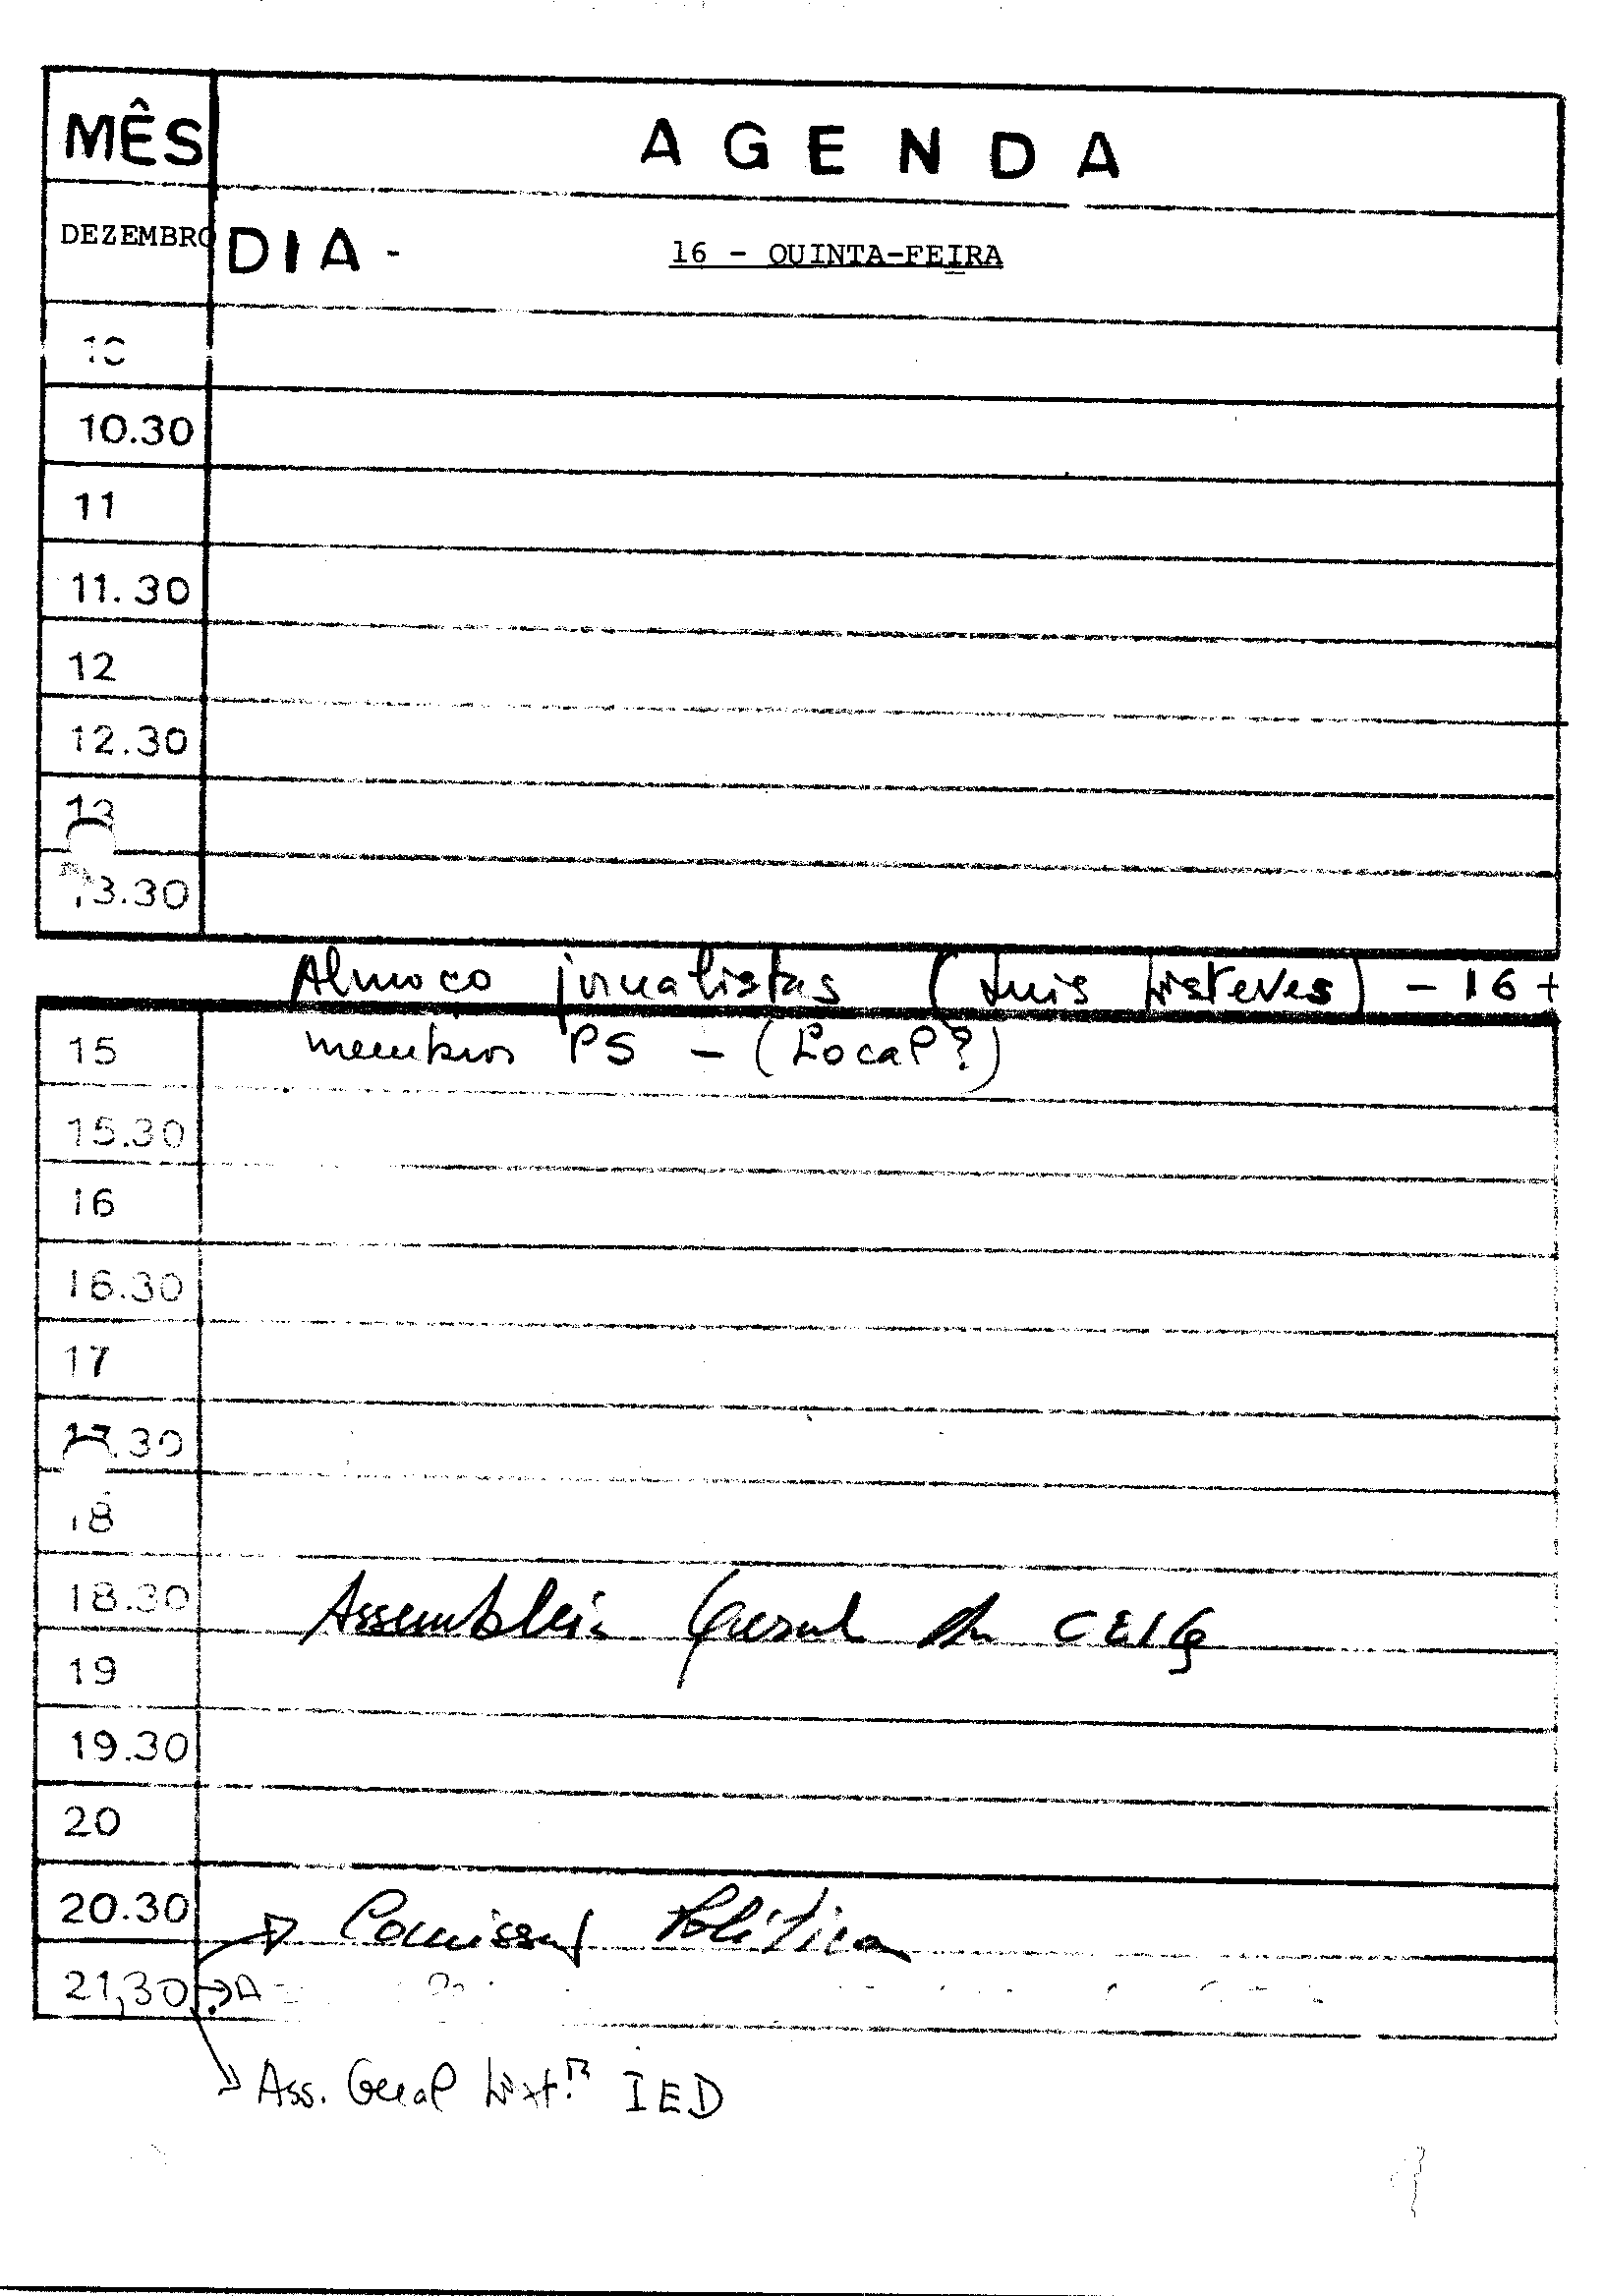 MÊS AGENDA
DEZEMBRO DIA - 16 - QUINTA-FEIRA
10
10.30
11
11.30
12
12.30
13
13.30
Almoço jornalistas (Luis Esteves) - 16 +
15 membros PS - (Local?)
15.30
16
16.30
17
17.30
18
18.30 Assembleia Geral da CEIG
19
19.30
20
20.30 → Comissão Política
21,30 → A
→ Ass. Geral Ext.ª IED